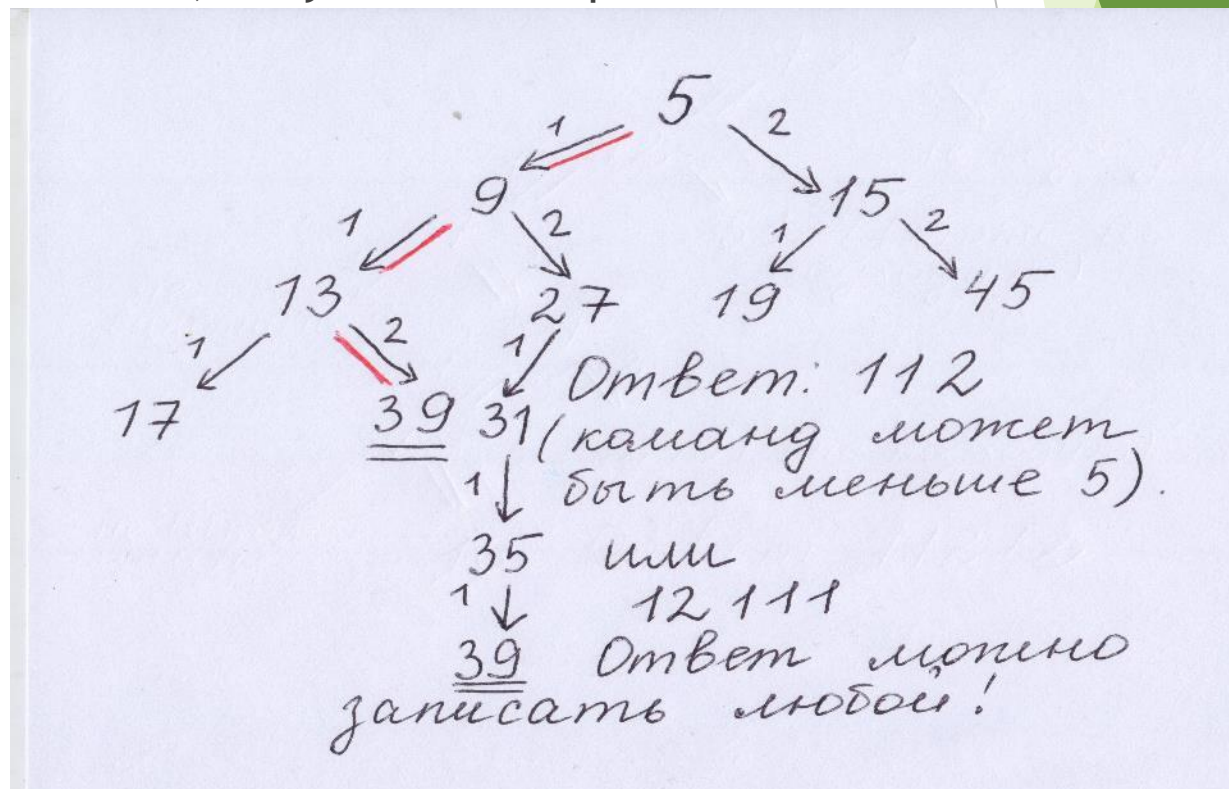 5
1 2
9 15
1 2 1 2
13 27 19 45
1 2 1 Ответ: 112
17 39 31 (команд может
1 быть меньше 5).
35 или
1 12111
39 Ответ можно
записать любой!